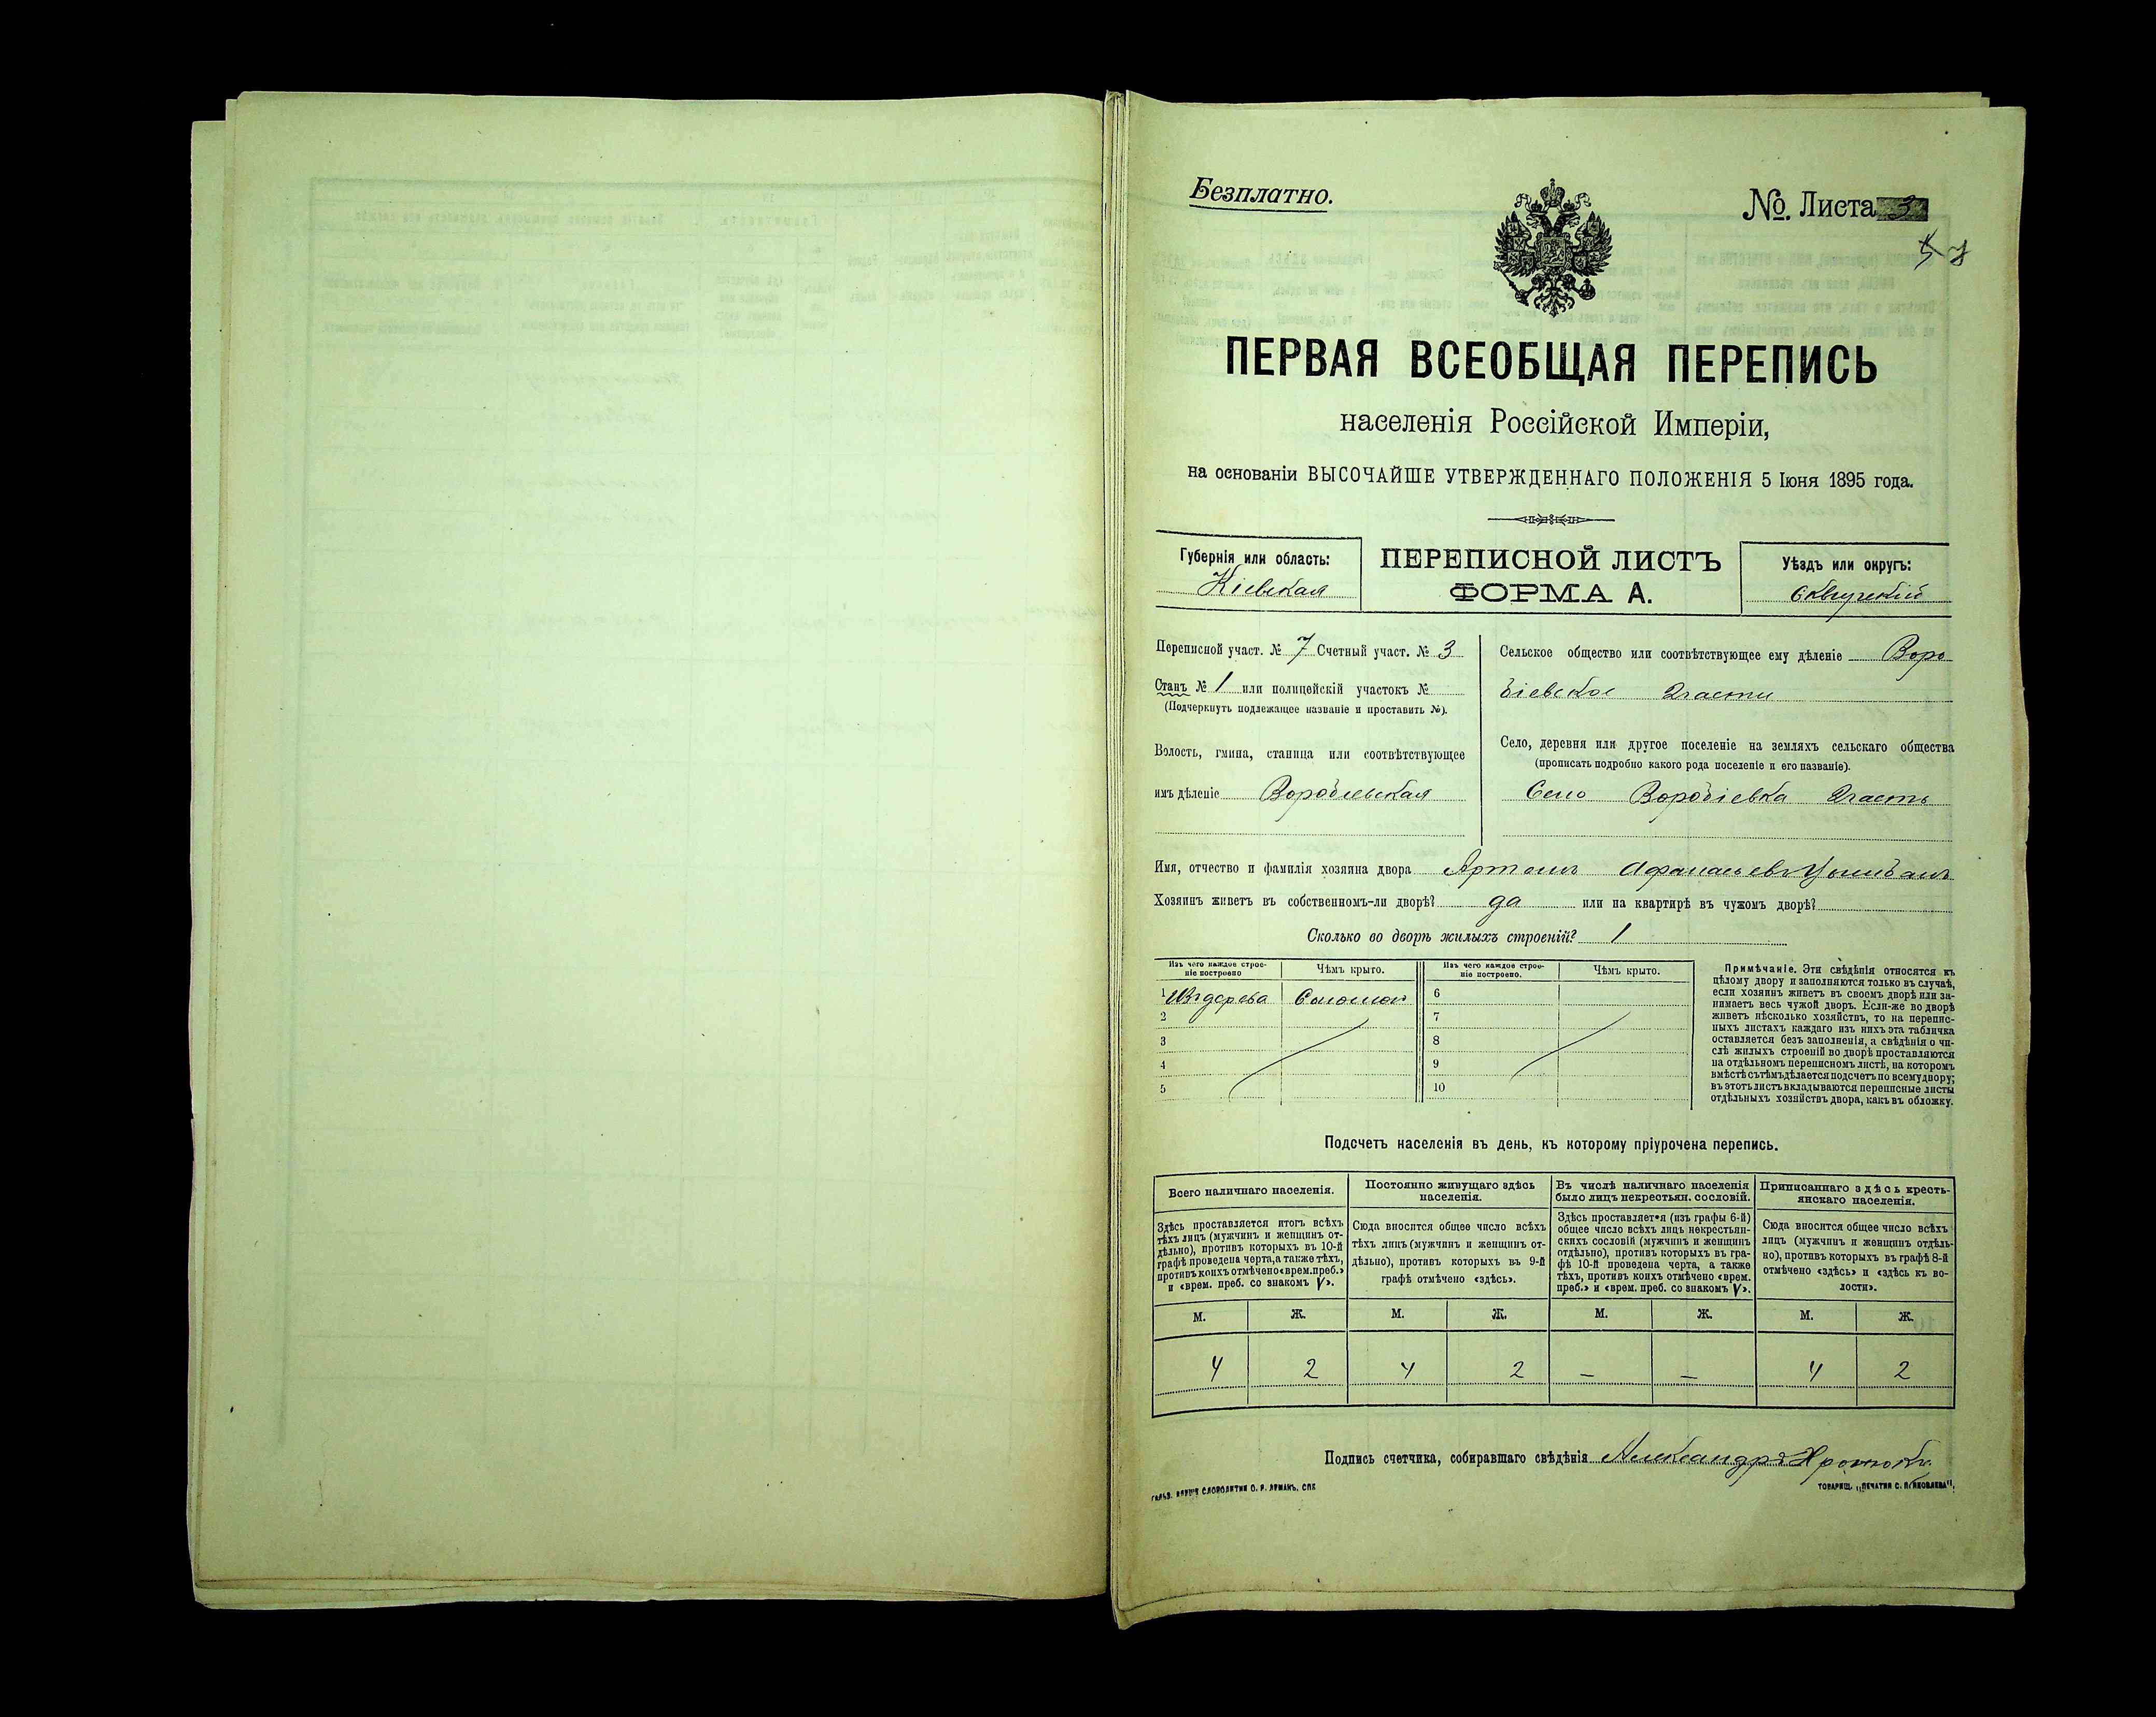 Безплатно.
№. Листа 3
ПЕРВАЯ ВСЕОБЩАЯ ПЕРЕПИСЬ
населенія Россійской Имперіи,
на основаніи ВЫСОЧАЙШЕ УТВЕРЖДЕННАГО ПОЛОЖЕНІЯ 5 Іюня 1895 года.
Губернія или область:
Кіевская
ПЕРЕПИСНОЙ ЛИСТЪ
ФОРМА А.
Уѣздъ или округъ:
Сквирскій
Переписной участ. № 7 Счетный участ. № 3
Станъ № 1 или полицейскій участокъ №
(Подчеркнуть подлежащее названіе и проставить №).
Волость, гмина, станица или соотвѣтствующее
имъ дѣленіе
Сельское общество или соотвѣтствующее ему дѣленіе Воро
біевское
Село, деревня или другое поселеніе на земляхъ сельскаго общества
(прописать подробно какого рода поселеніе и его названіе).
Село Воробіевка
Имя, отчество и фамилія хозяина двора Артемъ Афанасьевъ
Хозяинъ живетъ въ собственномъ-ли дворѣ? да или на квартирѣ въ чужомъ дворѣ?
Сколько во дворѣ жилыхъ строеній? 1
Изъ чего каждое строе-
ніе построено
Чѣмъ крыто.
Изъ чего каждое строе-
ніе построено.
Чѣмъ крыто.
1 Изъ дерева Соломой 6
2 7
3 8
4 9
5 10
Примѣчаніе. Эти свѣдѣнія относятся къ
цѣлому двору и заполняются только въ случаѣ,
если хозяинъ живетъ въ своемъ дворѣ или за-
нимаетъ весь чужой дворъ. Если-же во дворѣ
живетъ нѣсколько хозяйствъ, то на перепис-
ныхъ листахъ каждаго изъ нихъ эта табличка
оставляется безъ заполненія, а свѣдѣнія о чи-
слѣ жилыхъ строеній во дворѣ проставляются
на отдѣльномъ переписномъ листѣ, на которомъ
вмѣстѣ съ тѣмъ дѣлается подсчетъ по всему двору;
въ этотъ листъ вкладываются переписные листы
отдѣльныхъ хозяйствъ двора, какъ въ обложку.
Подсчетъ населенія въ день, къ которому пріурочена перепись.
Всего наличнаго населенія.
Здѣсь проставляется итогъ всѣхъ
тѣхъ лицъ (мужчинъ и женщинъ от-
дѣльно), противъ которыхъ въ 10-й
графѣ проведена черта, а также тѣхъ,
противъ коихъ отмѣчено «врем. преб.»
и «врем. преб. со знакомъ V».
Постоянно живущаго здѣсь
населенія.
Сюда вносится общее число всѣхъ
тѣхъ лицъ (мужчинъ и женщинъ от-
дѣльно), противъ которыхъ въ 9-й
графѣ отмѣчено «здѣсь».
Въ числѣ наличнаго населенія
было лицъ некрестьян. сословій.
Здѣсь проставляется (изъ графы 6-й)
общее число всѣхъ лицъ некрестьян-
скихъ сословій (мужчинъ и женщинъ
отдѣльно), противъ которыхъ въ гра-
фѣ 10-й проведена черта, а также
тѣхъ, противъ коихъ отмѣчено «врем.
преб.» и «врем. преб. со знакомъ V».
Приписаннаго здѣсь кресть-
янскаго населенія.
Сюда вносится общее число всѣхъ
лицъ (мужчинъ и женщинъ отдѣль-
но), противъ которыхъ въ графѣ 8-й
отмѣчено «здѣсь» и «здѣсь къ во-
лости».
М. Ж. М. Ж. М. Ж. М. Ж.
4 2 4 2 — — 4 2
Подпись счетчика, собиравшаго свѣдѣнія Александръ
ТОВАРИЩ. „ПЕЧАТНЯ С. П. ЯКОВЛЕВА".